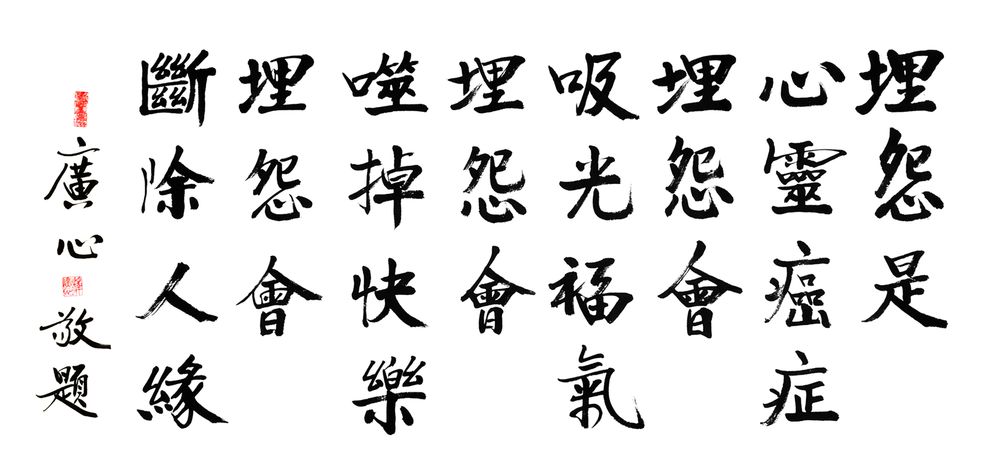 埋怨是
心靈癌症
埋怨會
吸光福氣
埋怨會
噬掉快樂
埋怨會
斷除人緣
廣心敬題